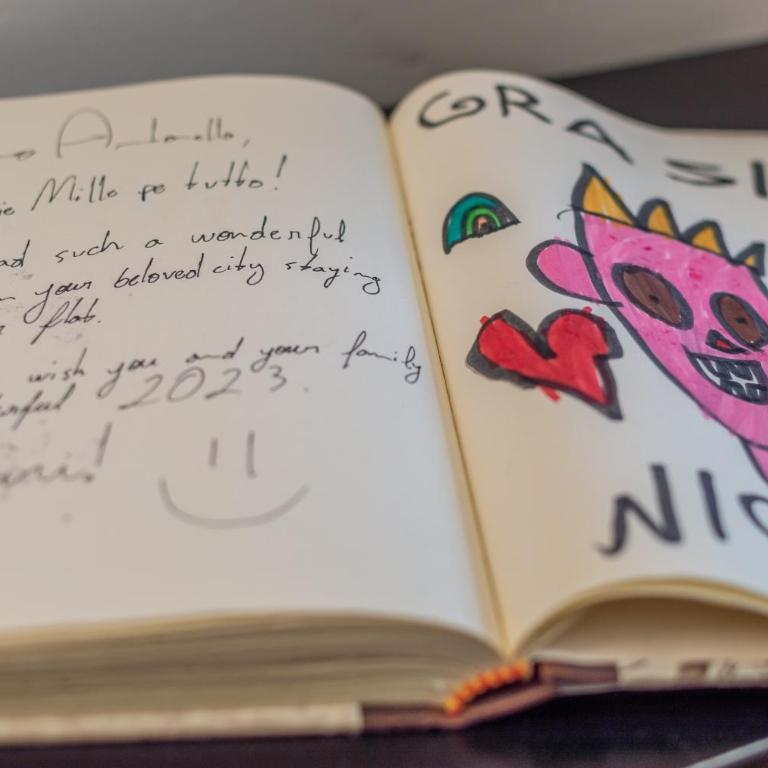 Antonello,
Mille pe tutto!
ad such a wonderful
n your beloved city staying
flat.
wish you and your family
2023.
GRASI
NIC